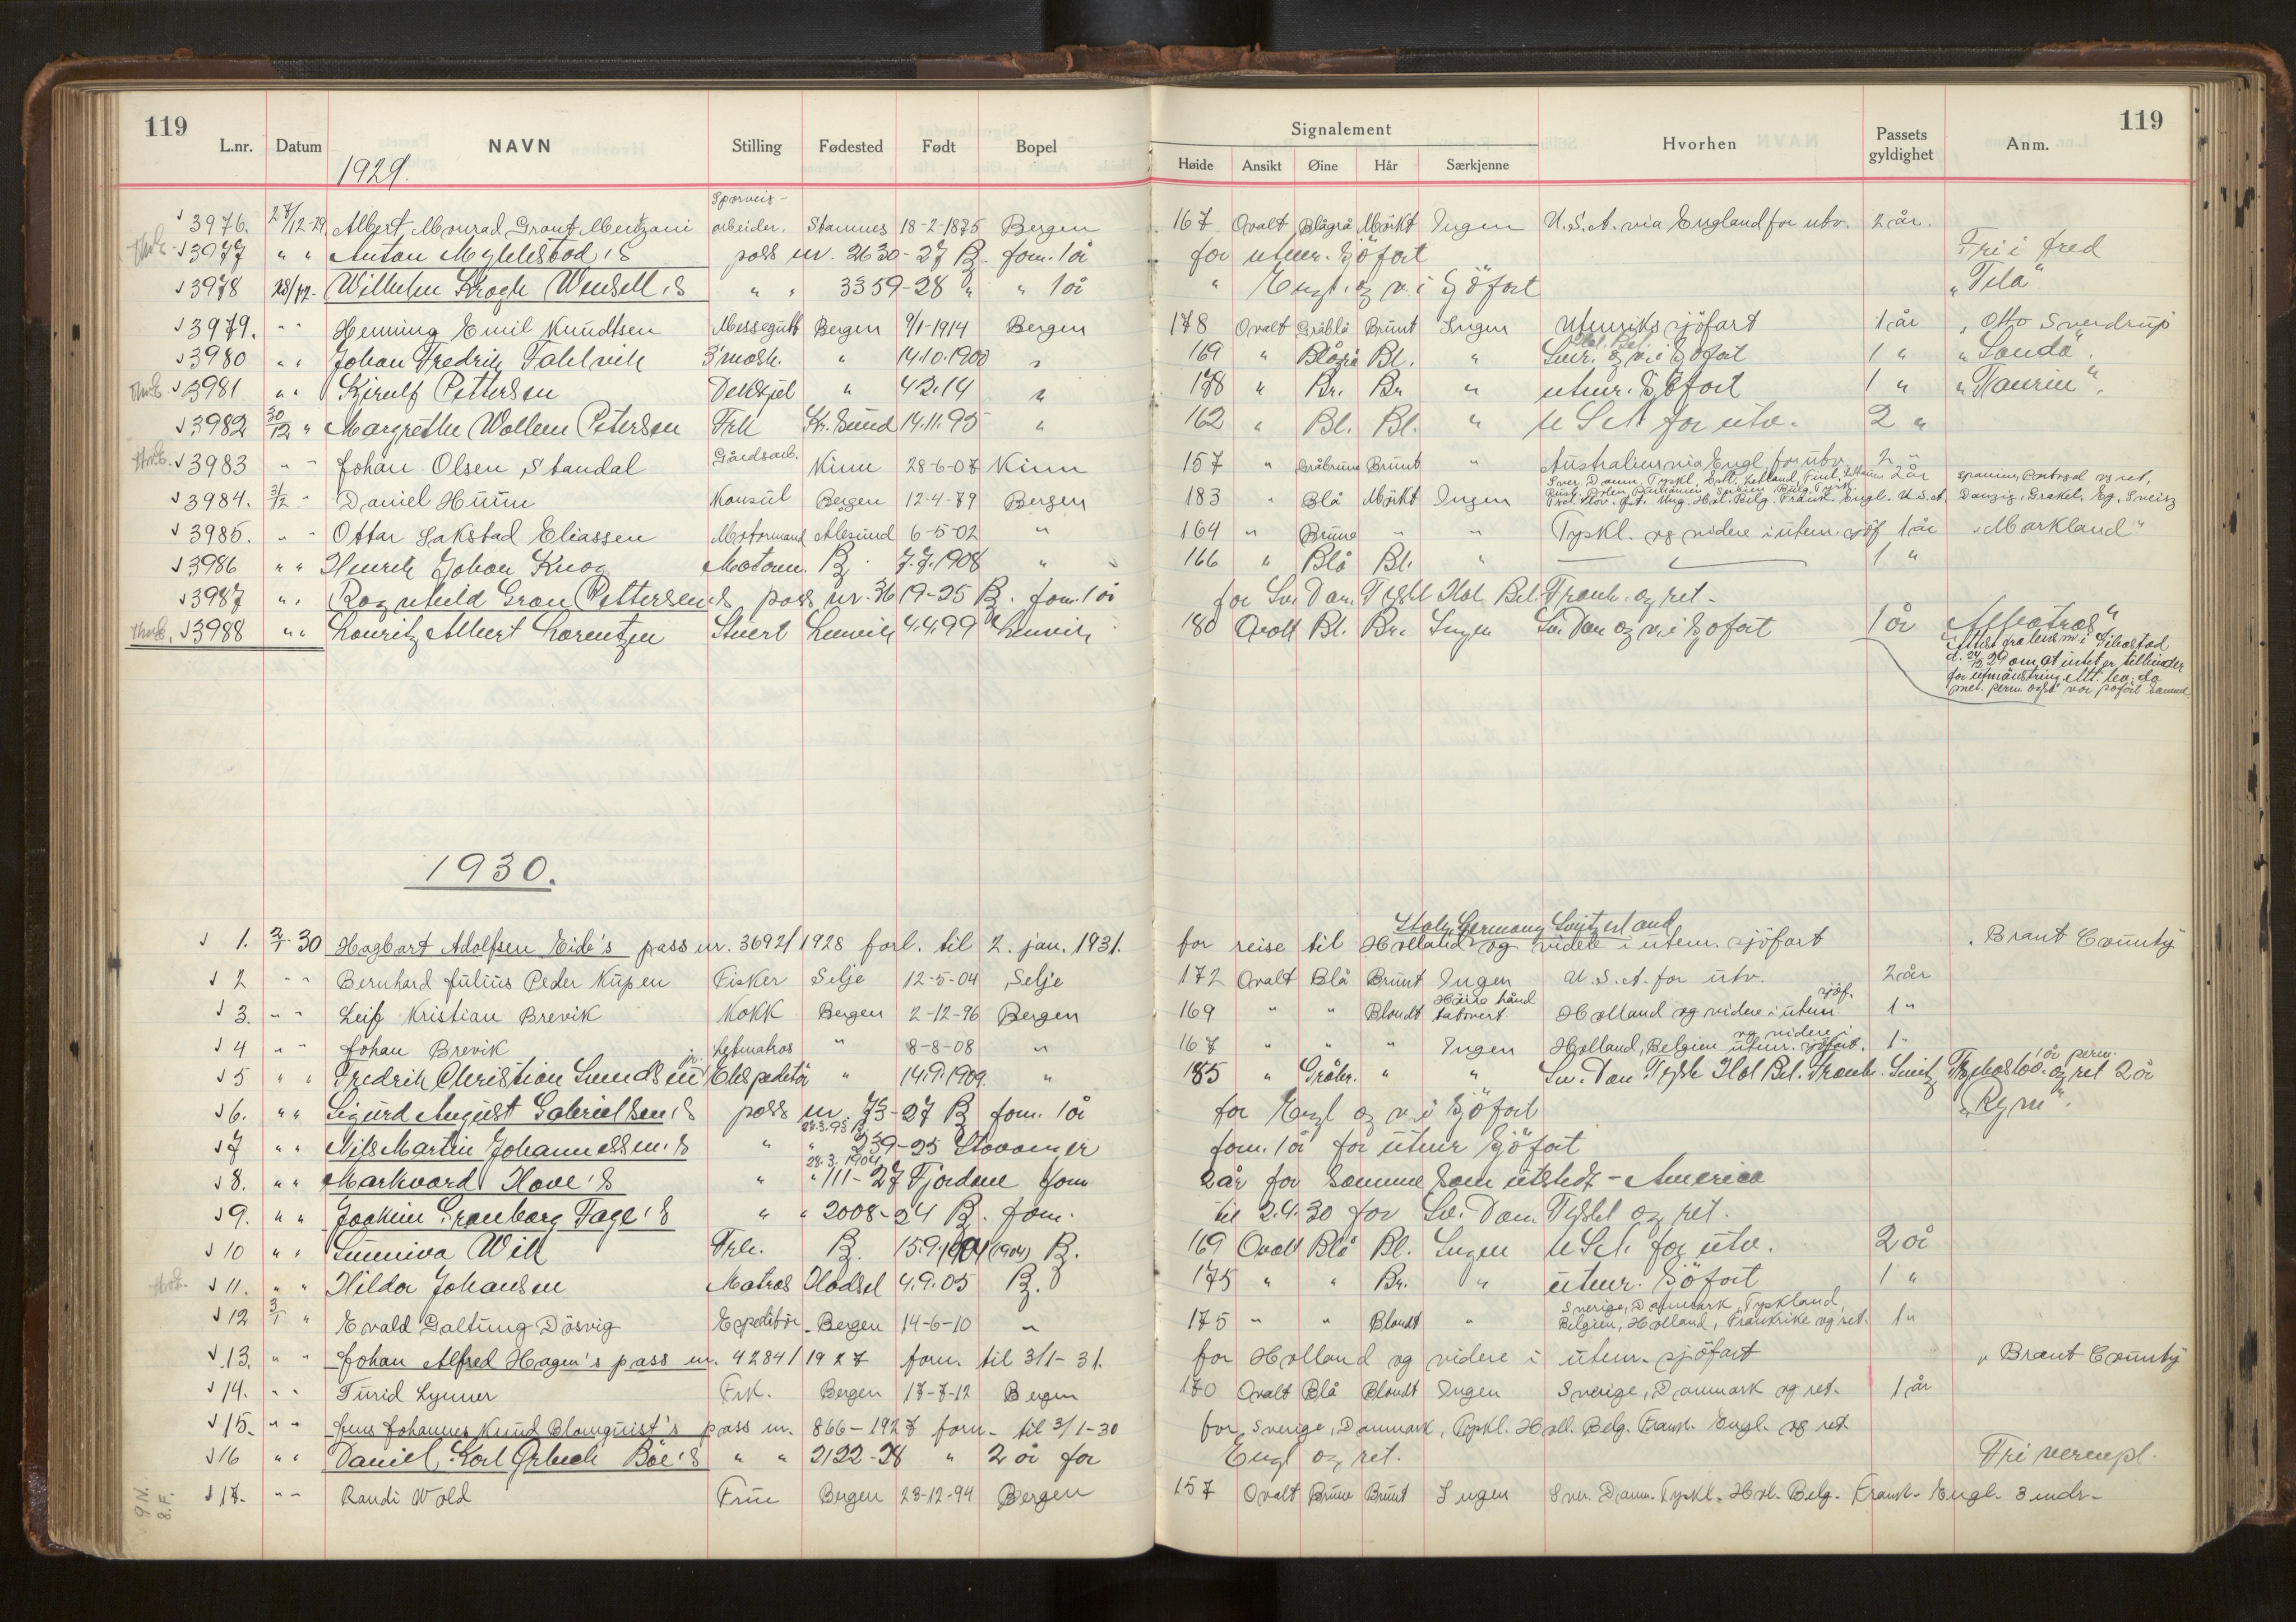 119
L.nr. Datum NAVN Stilling Fødested Født Bopel
1929.
Signalement
Høide Ansikt Øine Hår Særkjenne Hvorhen Passets gyldighet Anm.
119
Sporveis-
3976. 27/12-29. Albert Monrad Grant Mentzoni arbeider. Stamnes 18-2-1875 Bergen 167 Ovalt Blågrå Mörkt Ingen U.S.A. via England for utv. 2 år.
3977 " " Anton Myklebod 's pass nr. 2630-27 B. forn. 1 år for utenr. Sjöfart Fri i fred
3978 28/12- Wilhelm Krogh Wendell 's " " 3359-28 " " 1 år " Engl. og v. i Sjöfart "Tela"
3979. " " Henning Emil Knudtsen Messegutt Bergen 9/1-1914 Bergen 178 Ovalt Gråblå Brunt Ingen Utenriks sjöfart 1 år " Otto Sverdrup
3980 " " Johan Fredrik Fahlvik 3'mask. " 14.10.1900 " 169 " Blågrå Bl. " og v. i Sjöfart 1 " "Sanda".
3981 " " Kjerulf Pettersen " 178 " Br. Br " utenr. Sjöfart 1 " "Taurin".
3982 30/12 " Margrethe Wollem Petersen Frk Kr.Sund 14.11.95 " 162 " Bl. Bl. " U S A for utv. 2 "
3983 " " Johan Olsen Standal Gårdsarb. Kinn 28-6-07 Kinn 157 " Gråbrune Brunt " Australien via Engl. for utv. 2 "
3984. 31/12 " Daniel Huun Konsul Bergen 12-4-79 Bergen 183 " Blå Mörkt Ingen Sver. Danm. Tyskl. Estl. Letland, Finl. 2 år Spanien, Portugal og ret,
Hol. Belg. Frank. Engl. U.S.A. Danzig, Grækel. Eg. Sveitz
3985. " " Ottar Lakstad Eliassen Motormand Ålesund 6-5-02 " 164 " Brune " " Tyskl. og videre i utenr. sjöf 1 år "Markland"
3986 " " Henrik Johan Krog Motorm. B. 7.7.1908 " 166 " Blå Bl. " 1 "
3987 " " Ragnhild Gran Pettersen's pass nr. 3619-25 B. forn. 1 år for Sv. Dan. Tyskl Hol Bel. Frank. og ret.
3988 " " Lauritz Albert Lorentzen Stuert Lenvik 4.4.99 Lenvik 180 Ovalt Bl. Br. Ingen Sv. Dan og v. i Sjöfart 1 år "Albatros"
Attest fra lensm. i Gibostad
d. 24/12 29 om at intet er tilhinder
for utmönstring
1930.
Italy, Germany, Switzerland
1. 2/1-30 Hagbart Adolfsen Eide's pass nr. 3692/1928 forl. til 2. jan. 1931. for reise til Holland og videre i utenr. sjöfart " Brant County
2 " " Bernhard Julius Peder Kupen Fisker Selje 12-5-04 Selje 172 Ovalt Blå Brunt Ingen U.S.A. for utv. 2 år
3. " " Leif Kristian Brevik Kokk Bergen 2-12-96 Bergen 169 " " Blondt Höire hånd tatovert. Holland og videre i utenr. sjöf. 1 "
4 " " Johan Brevik Letmatros " 8-8-08 " 167 " " " Ingen Holland, Belgien og videre i utenr. sjöfart. 1 "
5 " " Fredrik Christian Sundsin jr. Ekspeditör " 14.9.1909. " 185 " Gråbr. " " Sv. Dan. Tyskl Hol Bel. Frank. og ret 2 år
6. " " Sigurd August Gabrielsen's pass nr. 73-27 B forn. 1 år for Engl og v. i Sjöfart "Rym".
7 " " Nils Martin Johannessen's " " 239-25 Stavanger forn. 1 år for utenr Sjöfart
28.3.1904
8. " " Markvard Hove's " " 111-27 Fjordane forn 2 år for samme som utstedt - America
9. " " Joakim Grønborg Fage's " " 2008-24 B. forn. til 2.4.30 for Sv. Dan. Tyskl og ret.
10 " " Sunniva Wik Frk. B. 15.9.1904 (1904) B. 169 Ovalt Blå Bl. Ingen U S A. for utv. 2 år
11. " " Hildor Johansen Matros Hadsel 4.9.05 B. 175 " " Br. " utenr. Sjöfart 1 "
12 3/1 " Evald Galtung Dösvig Expeditör Bergen 14-6-10 " 175 " " Blondt " Sverige, Danmark, Tyskland,
Belgien, Holland, Frankrike og ret. 1 "
13. " " Johan Alfred Hagen's pass nr. 4284/1927 forn. til 3/1-31. for Holland og videre i utenr. sjöfart " Brant County
14. " " Turid Lynner Frk. Bergen 17-7-12 Bergen 170 Ovalt Blå Blondt Ingen Sverige, Danmark og ret. 1 år
15. " " Jens Johannes Knud Blomquist's pass nr. 866-1927 forn. til 3/1-30 for Sverige, Danmark, Tyskl. Holl. Belg. Frank. Engl. og ret
16 " " Daniel Karl Grieg Böe's " " 2122-28 " 2 år for Engl og ret. Fri vernepl.
17. " " Randi Wold Frue Bergen 28-12-94 Bergen 157 Ovalt Brune Brunt Ingen Sver. Danm. Tyskl. Hol. Belg. Frank. Engl. 3 mdr.
9 N.
8. F.